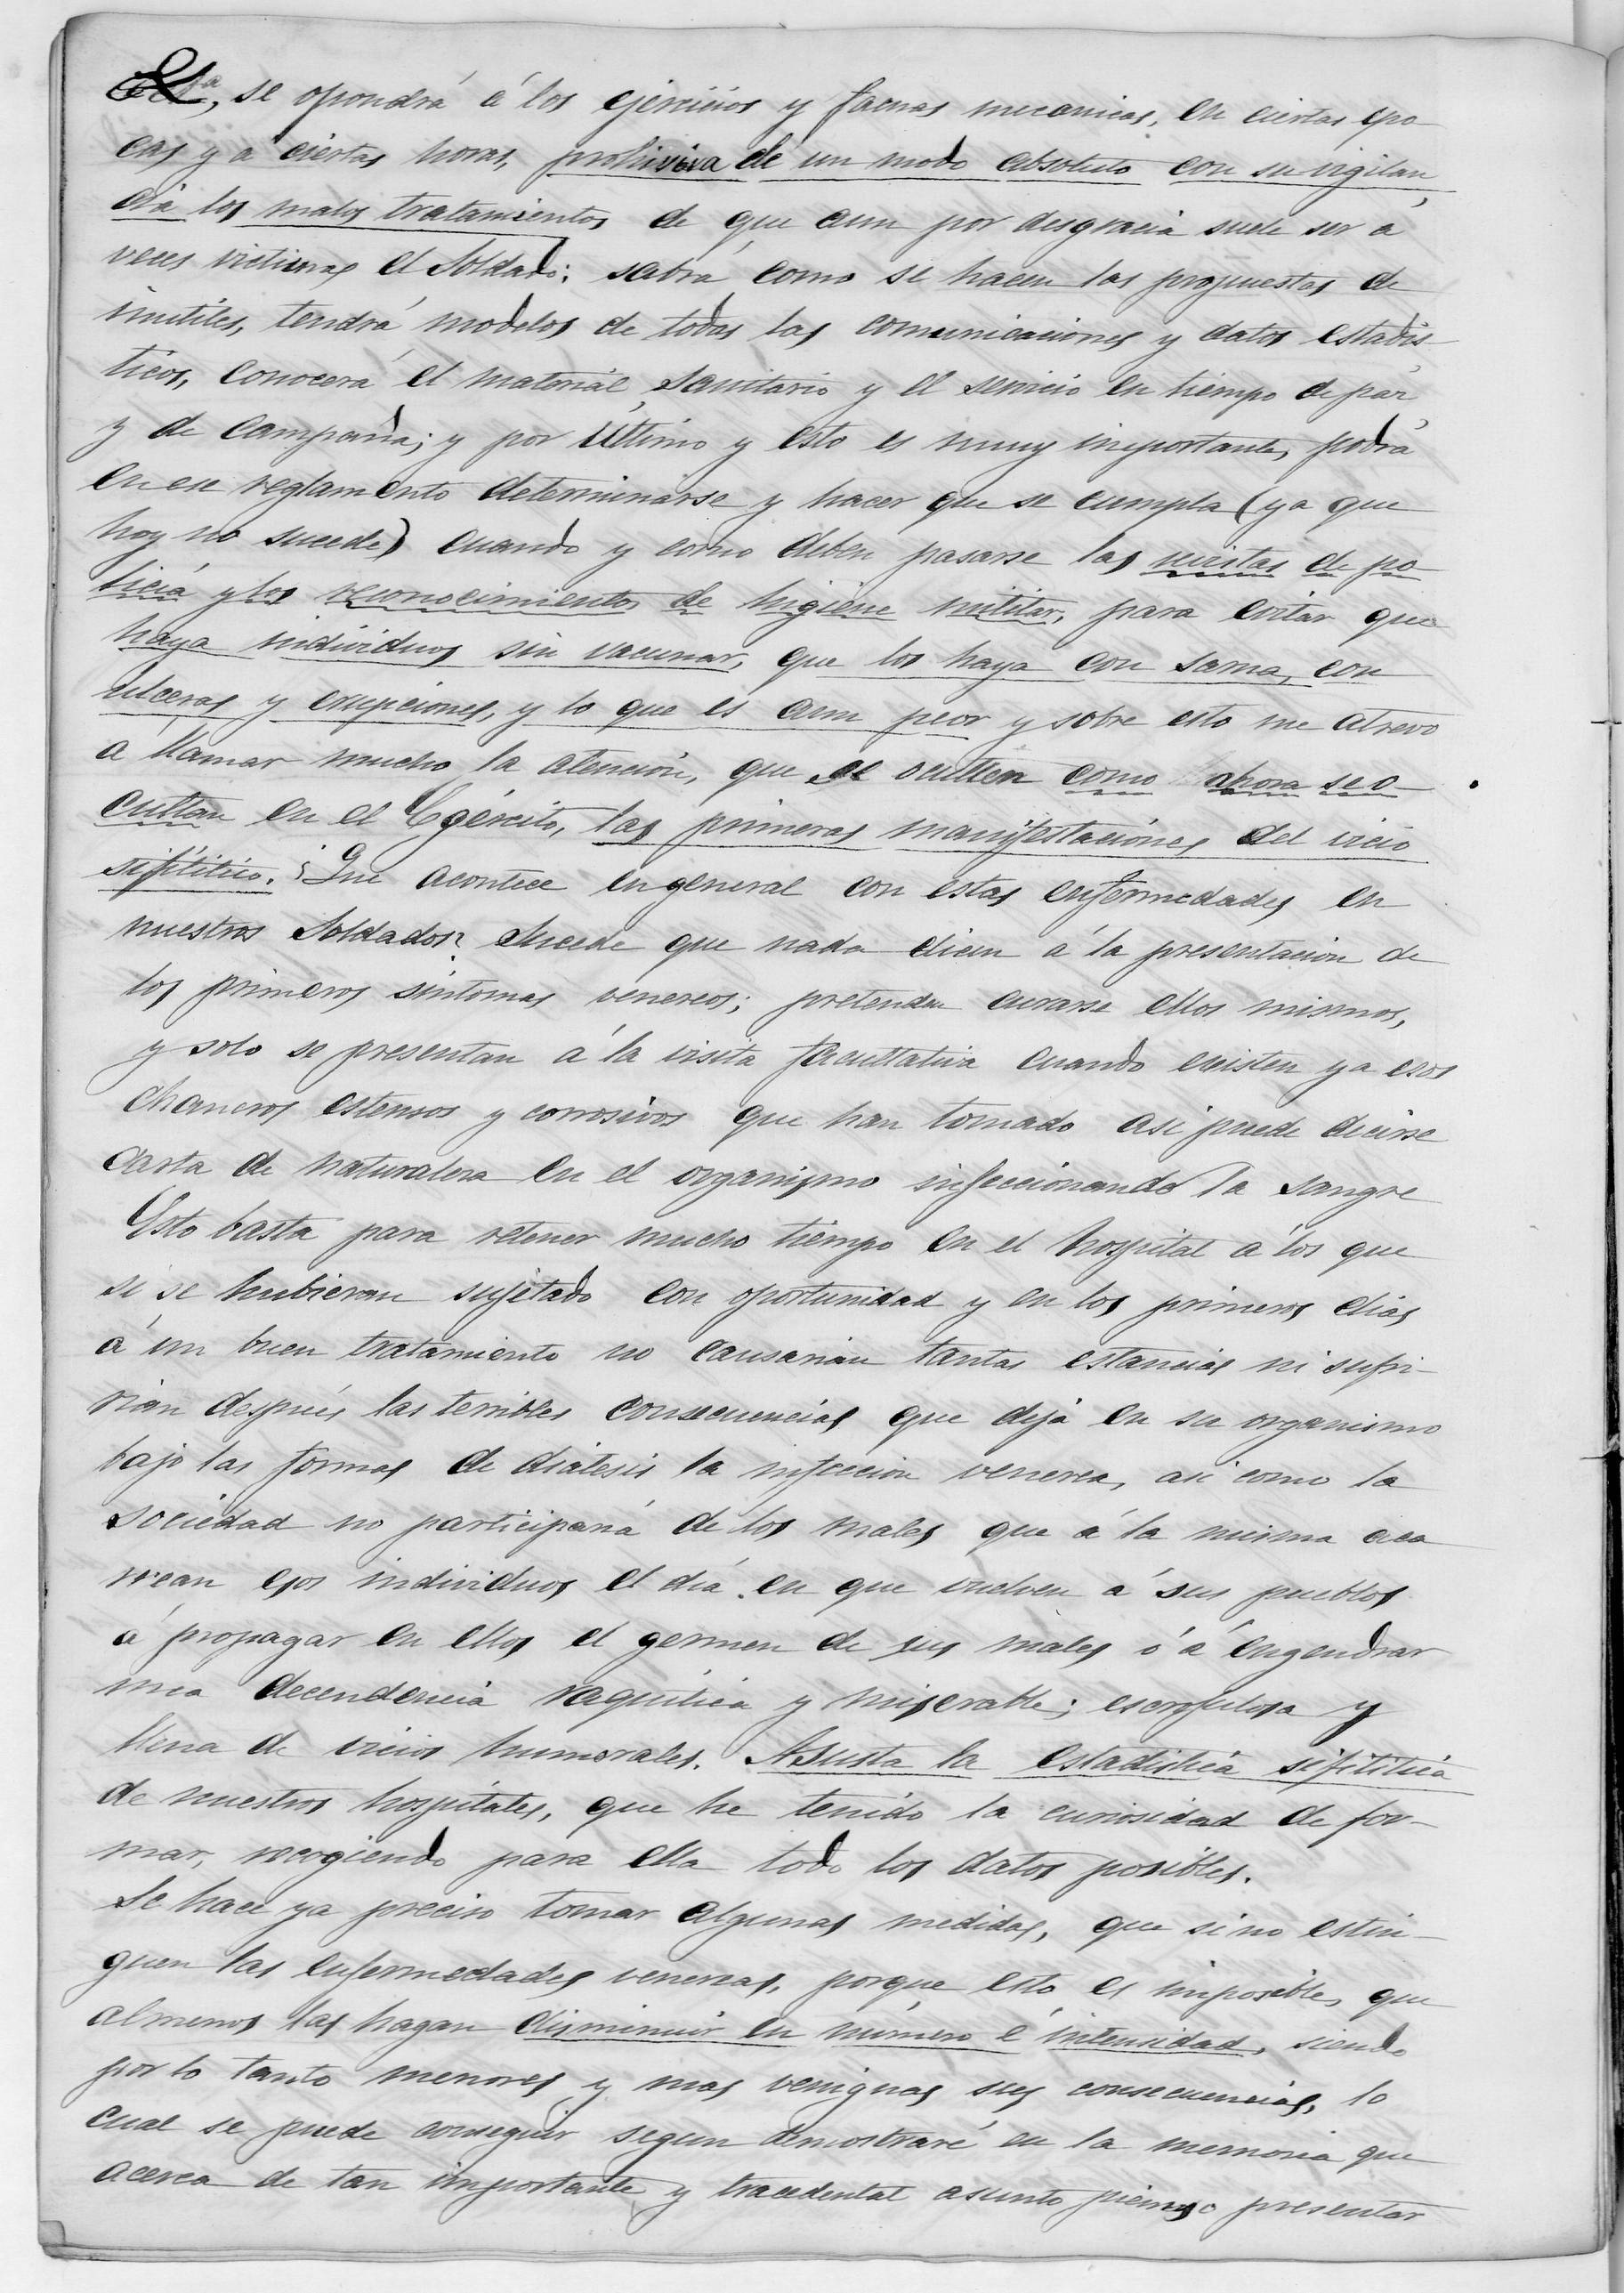 se opondrá á los ejercicios y faenas mecanicas, en ciertas epo-
cas y a ciertas horas, prohivira de un modo absoluto con su vigilan
cia los malos tratamientos de que aun por desgracia suele ser á
veces victimas el Soldado; sabrá como se hacen las propuestas de
inutiles, tendrá modelos de todas las comunicaciones y datos estadis-
ticos, conocerá el material Sanitario y el servicio en tiempo de paz
y de campaña; y por último y esto es muy importante, podrá
en ese reglamento determinarse y hacer que se cumpla (ya que
hoy no sucede) cuando y como deben pasarse las revistas de po-
licia y los reconocimientos de higiene militar, para evitar que
haya individuos sin vacunar, que los haya con sarna, con
ulceras y erupciones, y lo que es aun peor y sobre esto me atrevo
á llamar mucho la atención, que se oculten como ahora se o-
cultan en el Egército, las primeras manifestaciones del vicio
sifilitico. ¿Que acontece en general con estas enfermedades en
nuestros Soldados? Sucede que nada dicen á la presentacion de
los primeros sintomas venereos; pretenden curarse ellos mismos,
y solo se presentan á la visita facultativa cuando existen ya esos
chancros estensos y corrosivos que han tomado asi puede decirse
carta de naturaleza en el organismo infeccionando la sangre
Esto basta para retener mucho tiempo en el hospital á los que
si se hubieran sujetado con oportunidad y en los primeros dias
á un buen tratamiento no causarian tantas estancias ni sufri-
rian después las terribles consecuencias que deja en su organismo
bajo las formas de diatesis la infeccion venerea, asi como la
sociedad no participará de los males que á la misma aca
rrean esos individuos el dia en que vuelven á sus pueblos
á propagar en ellos el germen de sus males ó á engendrar
una decendencia raquitica y miserable; escrofulosa y
llena de vicios humorales. Asusta la estadistica sifilitica
de nuestros hospitales, que he tenido la curiosidad de for-
mar, recogiendo para ella todo los datos posibles.
Se hace ya preciso tomar algunas medidas, que si no estin-
guen las enfermedades venereas, porque esto es imposible, que
al menos las hagan disminuir en número é intensidad, siendo
por lo tanto menores y mas venignas sus consecuencias, lo
cual se puede conseguir segun demostraré en la memoria que
acerca de tan importante y tracedental asunto pienso presentar